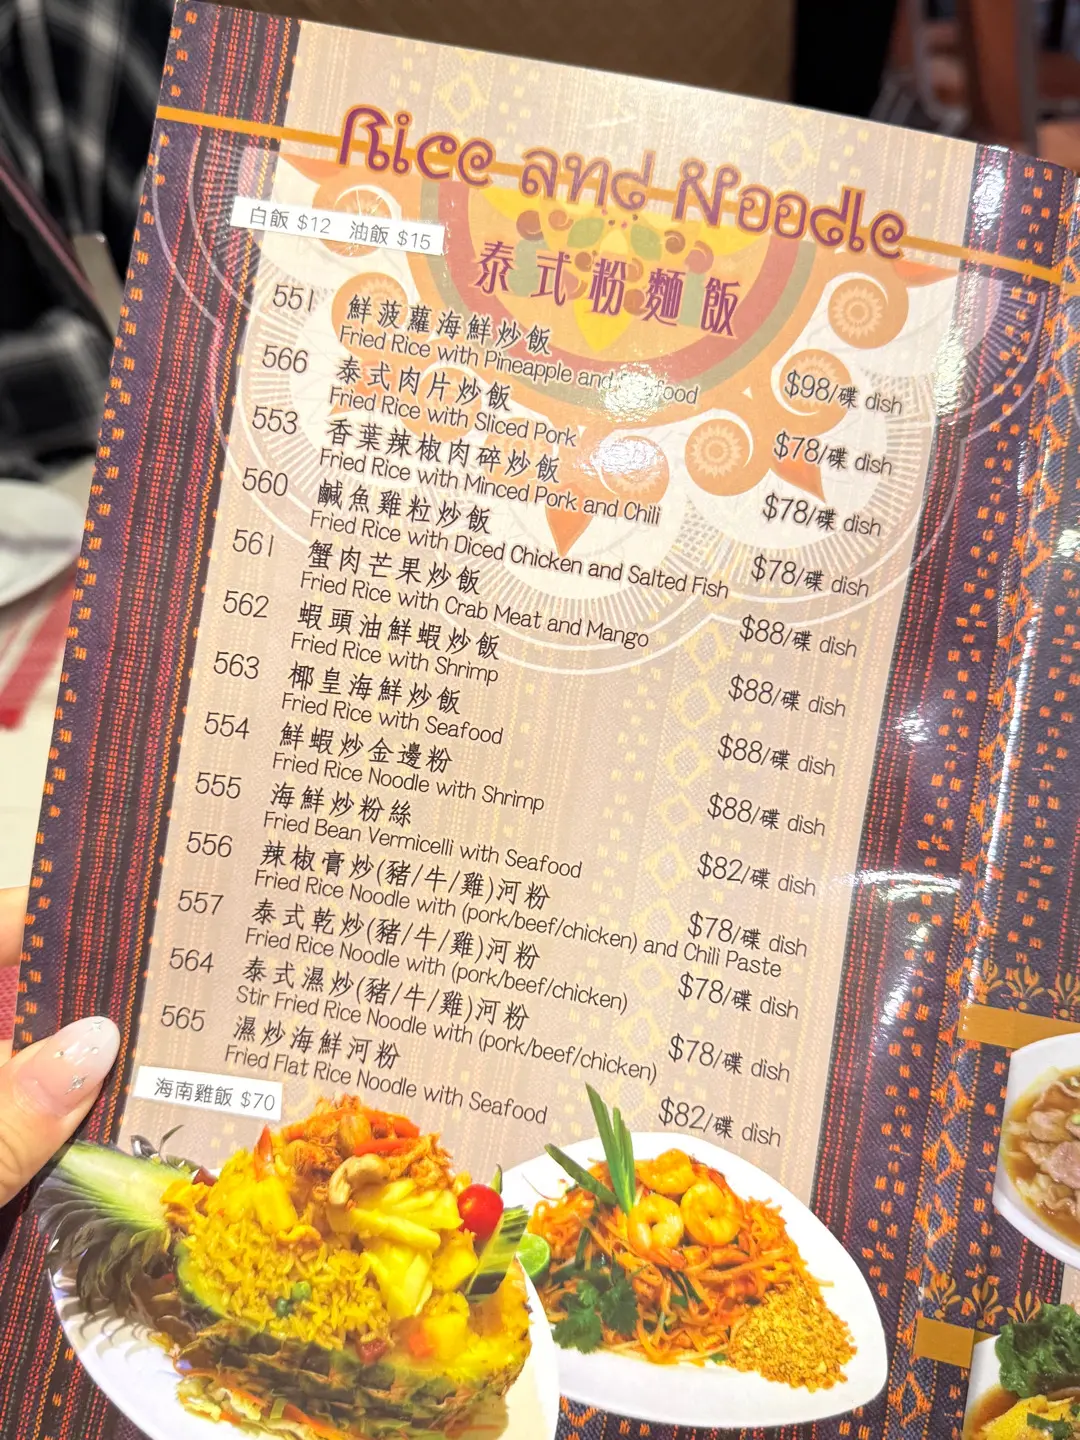 Rice and Noodle
白飯 $12 油飯 $15
泰式粉麵飯
551 鮮菠蘿海鮮炒飯 $98/碟 dish
Fried Rice with Pineapple and Seafood
566 泰式肉片炒飯 $78/碟 dish
Fried Rice with Sliced Pork
553 香葉辣椒肉碎炒飯 $78/碟 dish
Fried Rice with Minced Pork and Chili
560 鹹魚雞粒炒飯 $78/碟 dish
Fried Rice with Diced Chicken and Salted Fish
561 蟹肉芒果炒飯 $88/碟 dish
Fried Rice with Crab Meat and Mango
562 蝦頭油鮮蝦炒飯 $88/碟 dish
Fried Rice with Shrimp
563 椰皇海鮮炒飯 $88/碟 dish
Fried Rice with Seafood
554 鮮蝦炒金邊粉 $88/碟 dish
Fried Rice Noodle with Shrimp
555 海鮮炒粉絲 $82/碟 dish
Fried Bean Vermicelli with Seafood
556 辣椒膏炒(豬/牛/雞)河粉 $78/碟 dish
Fried Rice Noodle with (pork/beef/chicken) and Chili Paste
557 泰式乾炒(豬/牛/雞)河粉 $78/碟 dish
Fried Rice Noodle with (pork/beef/chicken)
564 泰式濕炒(豬/牛/雞)河粉 $78/碟 dish
Stir Fried Rice Noodle with (pork/beef/chicken)
565 濕炒海鮮河粉 $82/碟 dish
Fried Flat Rice Noodle with Seafood
海南雞飯 $70